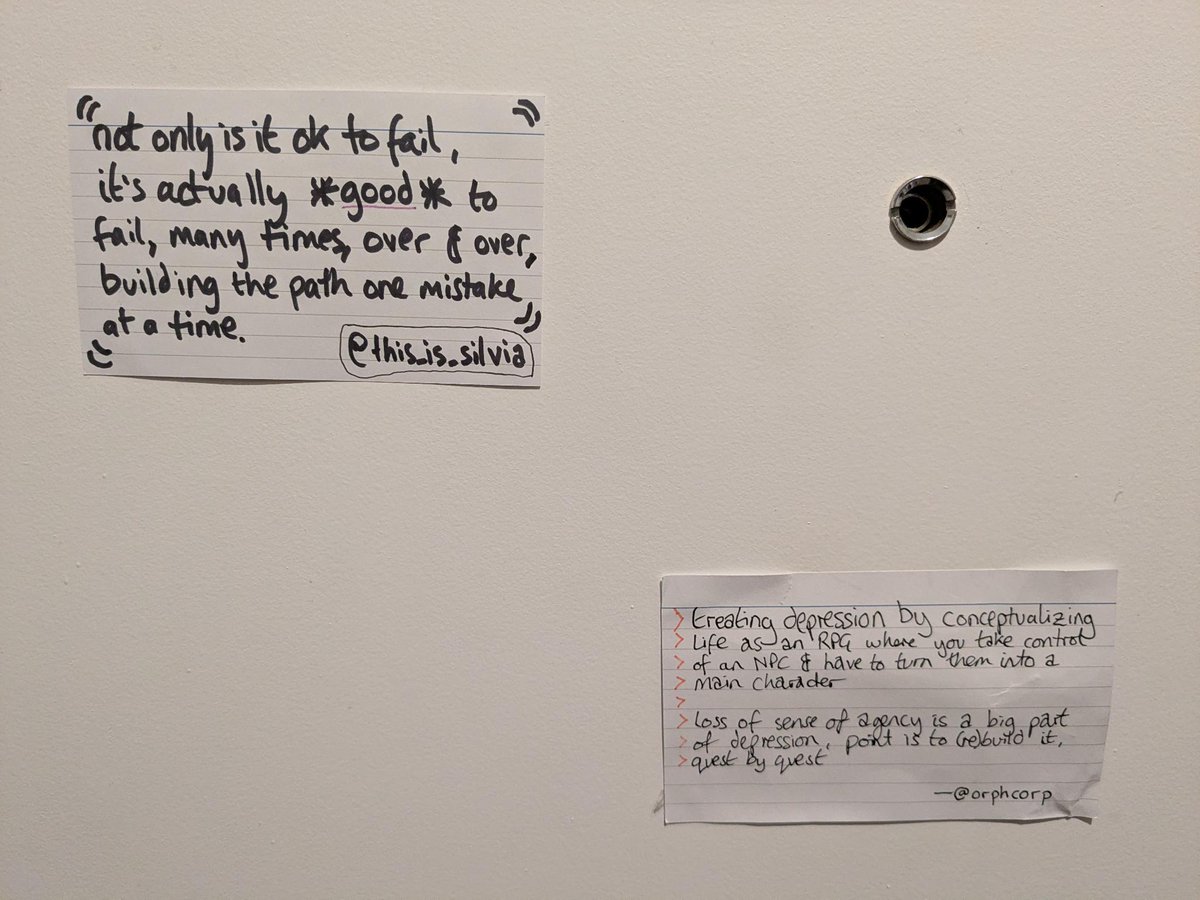 "not only is it ok to fail,
it's actually *good* to
fail, many times, over & over,
building the path one mistake
at a time."
@this_is_silvia
> treating depression by conceptualizing
> Life as an RPG where you take control
> of an NPC & have to turn them into a
> main character
>
> loss of sense of agency is a big part
> of depression, point is to (re)build it,
> quest by quest
—@orphcorp